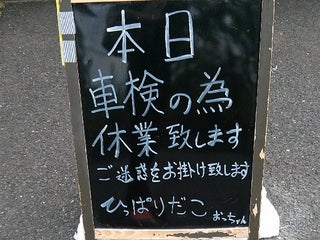 本日
車検の為
休業致します
ご迷惑をお掛け致します
ひっぱりだこ
おっちゃん